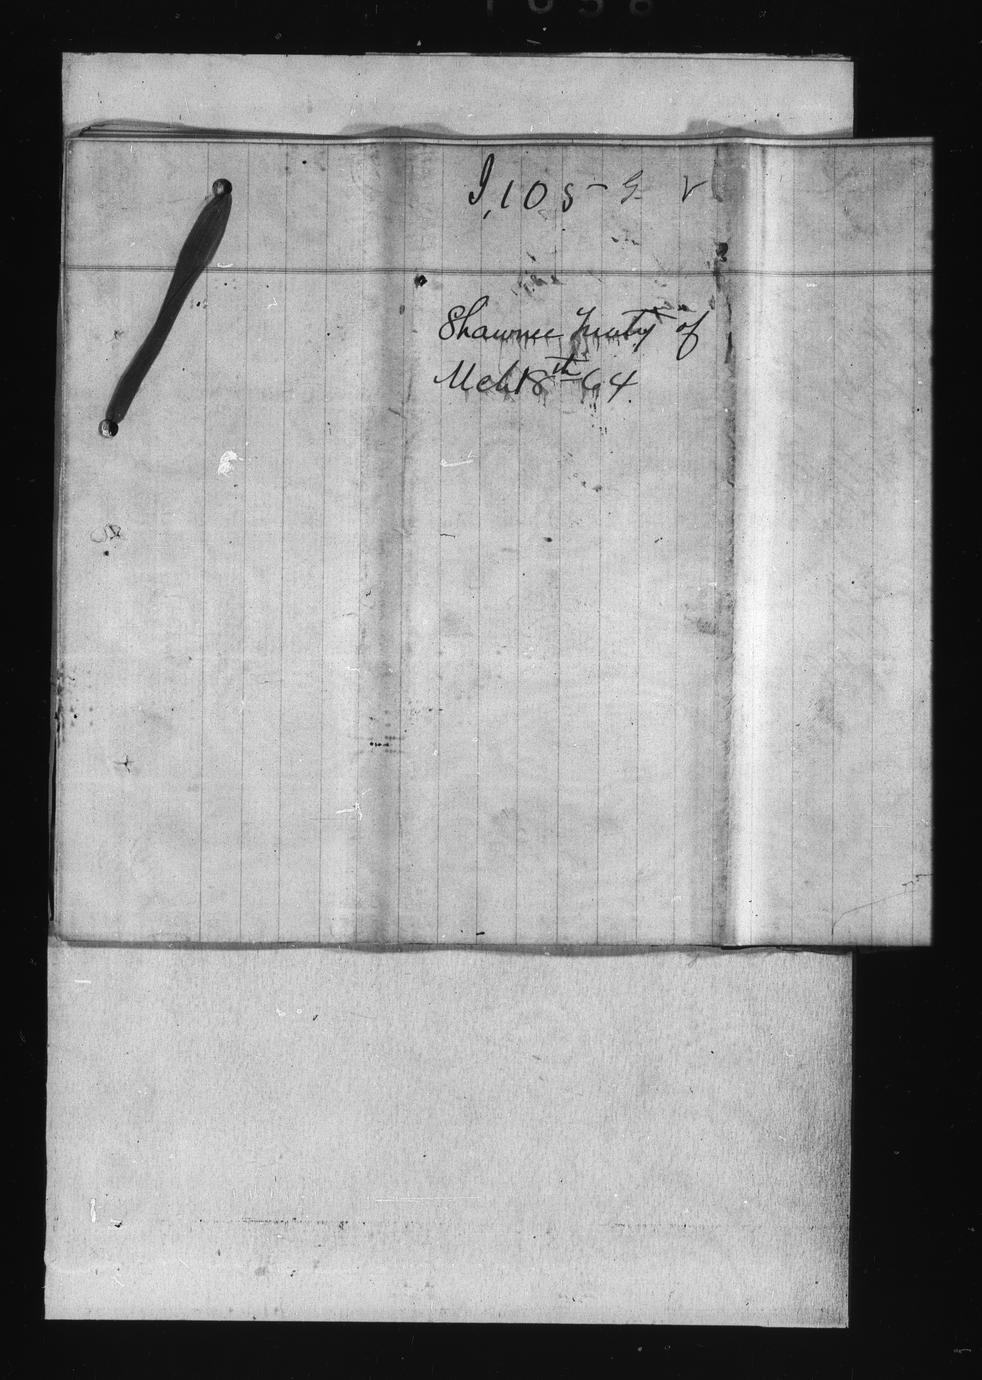 I,105- G V
Shawnee Treaty of
Mch 18th 64.